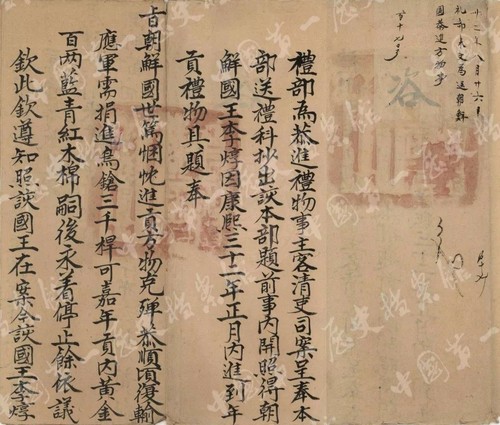 咨
禮部為恭進禮物事主客清吏司案呈奉本
部送禮科抄出該本部題前事內開照得朝
鮮國王李焞因康熙三十二年正月內進到年
貢禮物具題奉
旨朝鮮國世篤悃忱進貢方物克殫恭順頃復輸
應軍需捐進鳥鎗三千桿可嘉年貢內黃金
百兩藍青紅木棉嗣後永着停止餘依議
欽此欽遵知照該國王在案今該國王李焞